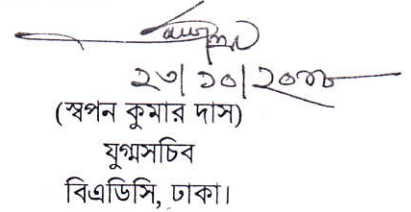 ২৩/১০/২০১৮
(স্বপন কুমার দাস)
যুগ্মসচিব
বিএডিসি, ঢাকা।